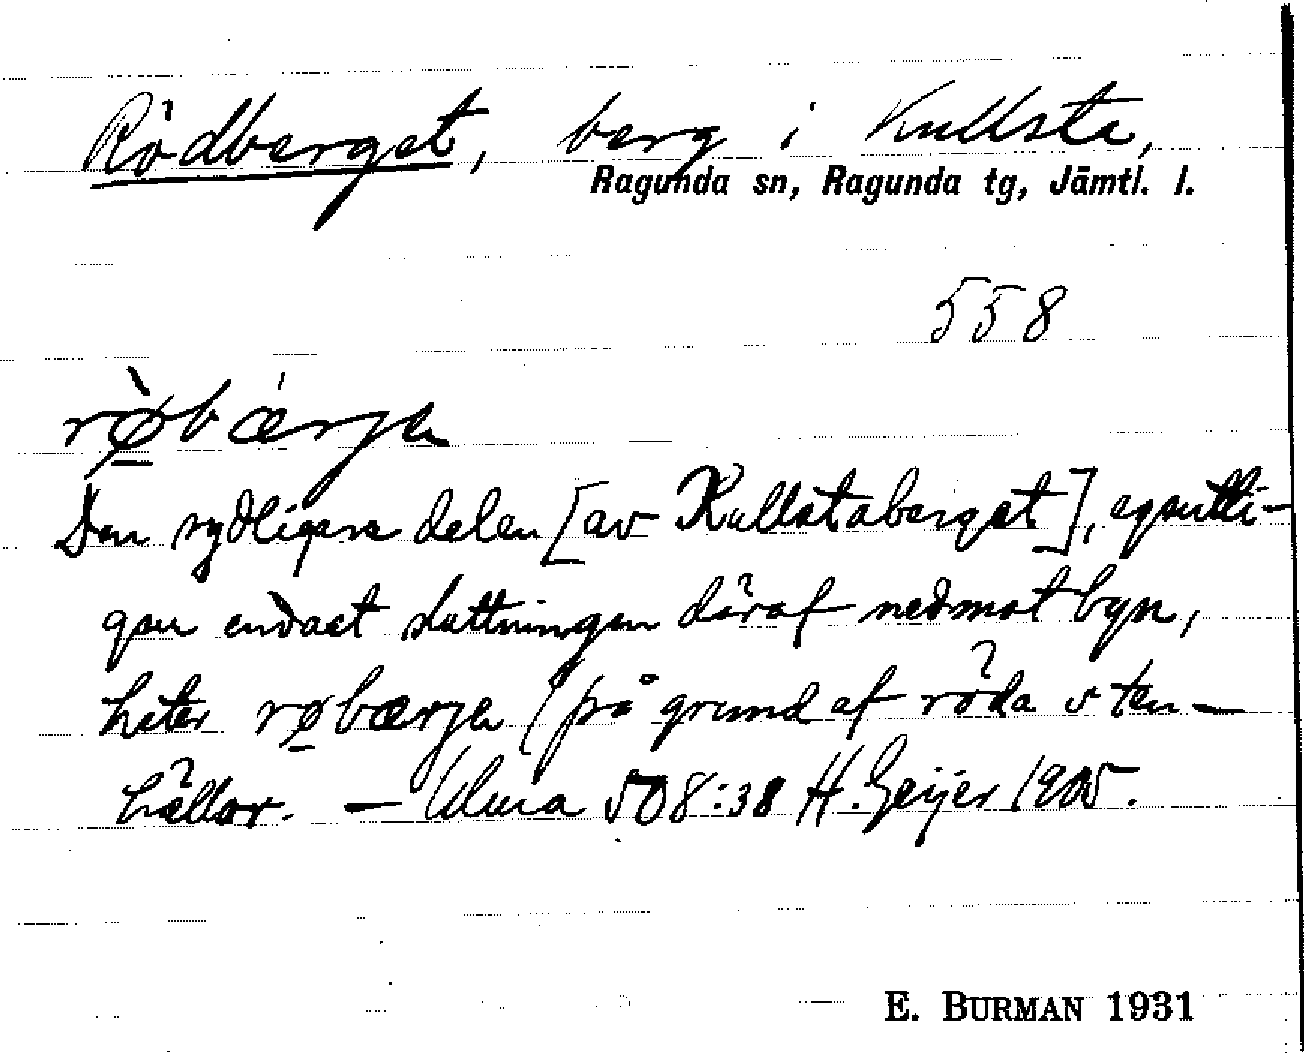 Rödberget, berg i Kullsta,
Ragunda sn, Ragunda tg, Jämtl. l.
558
rø̀bǽrjɐ
Den sydligare delen [av Kullstaberget], egentli-
gen endast sluttningen däraf nedmot byn,
heter røbærjɐ (på grund af röda sten-
hällar. — Ulma 508:38 H. Geijer 1905.
E. BURMAN 1931